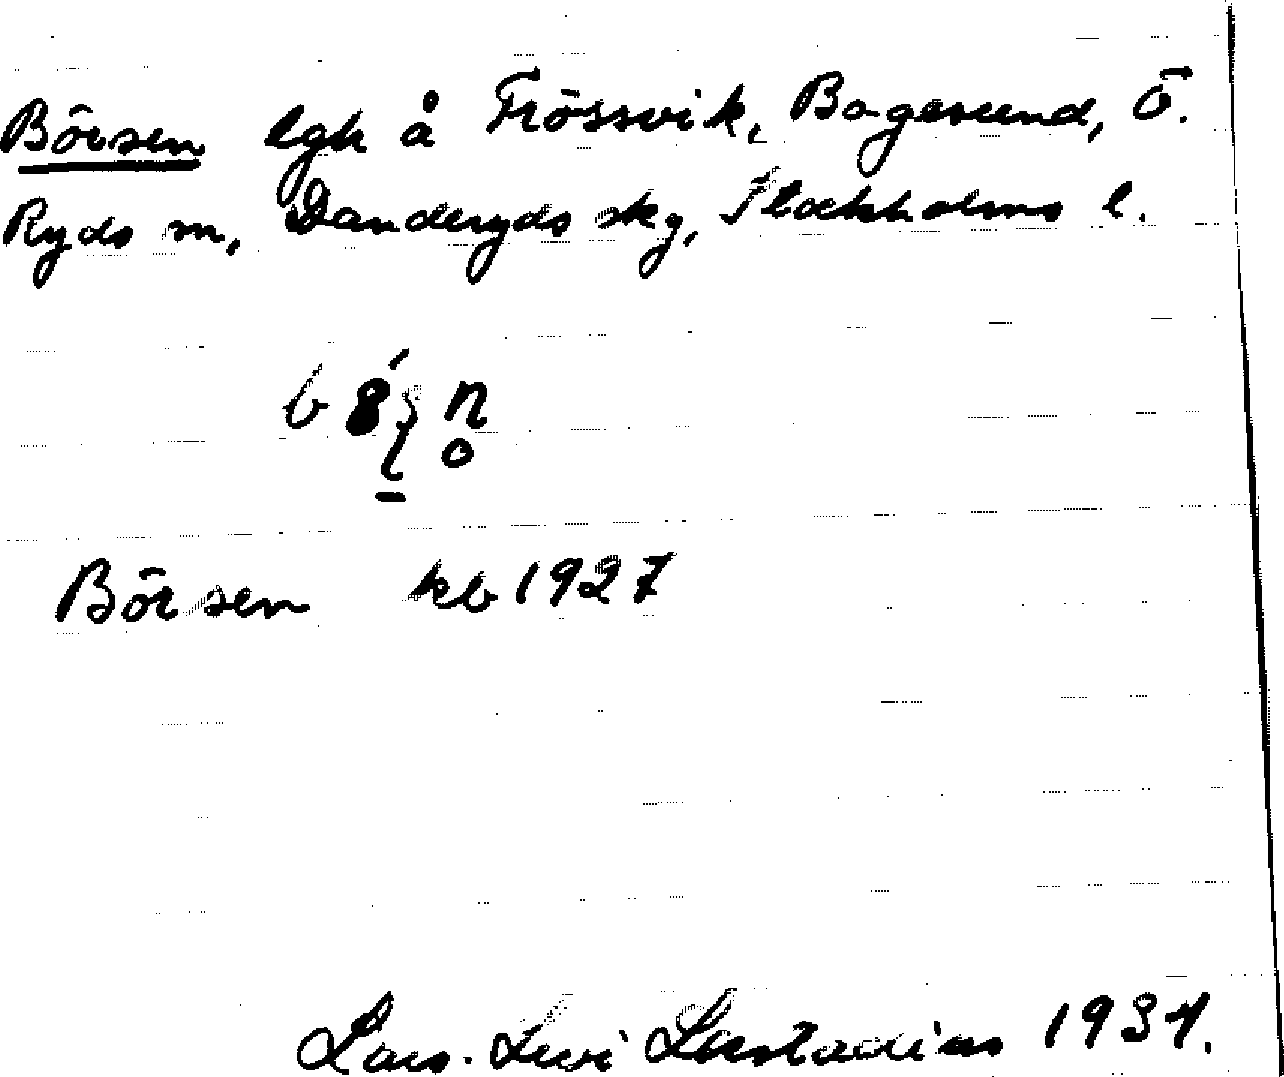 Börsen lgh å Frössvik, Bogesund, Ö.
Ryds sn, Danderyds skg, Stockholms l.
Börsen kb 1927
Lars-Levi Læstadius 1934.